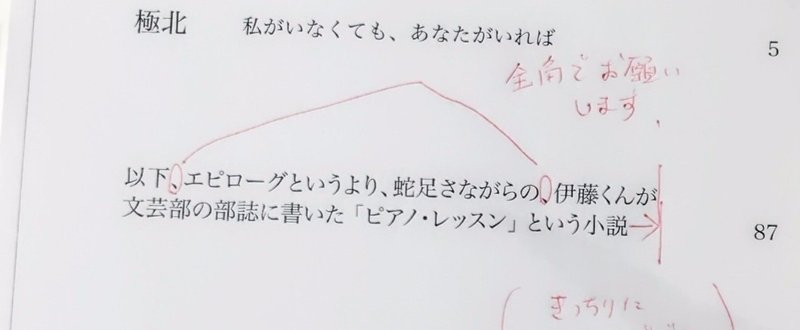 極北　私がいなくても、あなたがいれば　5
全角でお願い
します。
以下、エピローグというより、蛇足さながらの、伊藤くんが
文芸部の部誌に書いた「ピアノ・レッスン」という小説　87
きっちりに